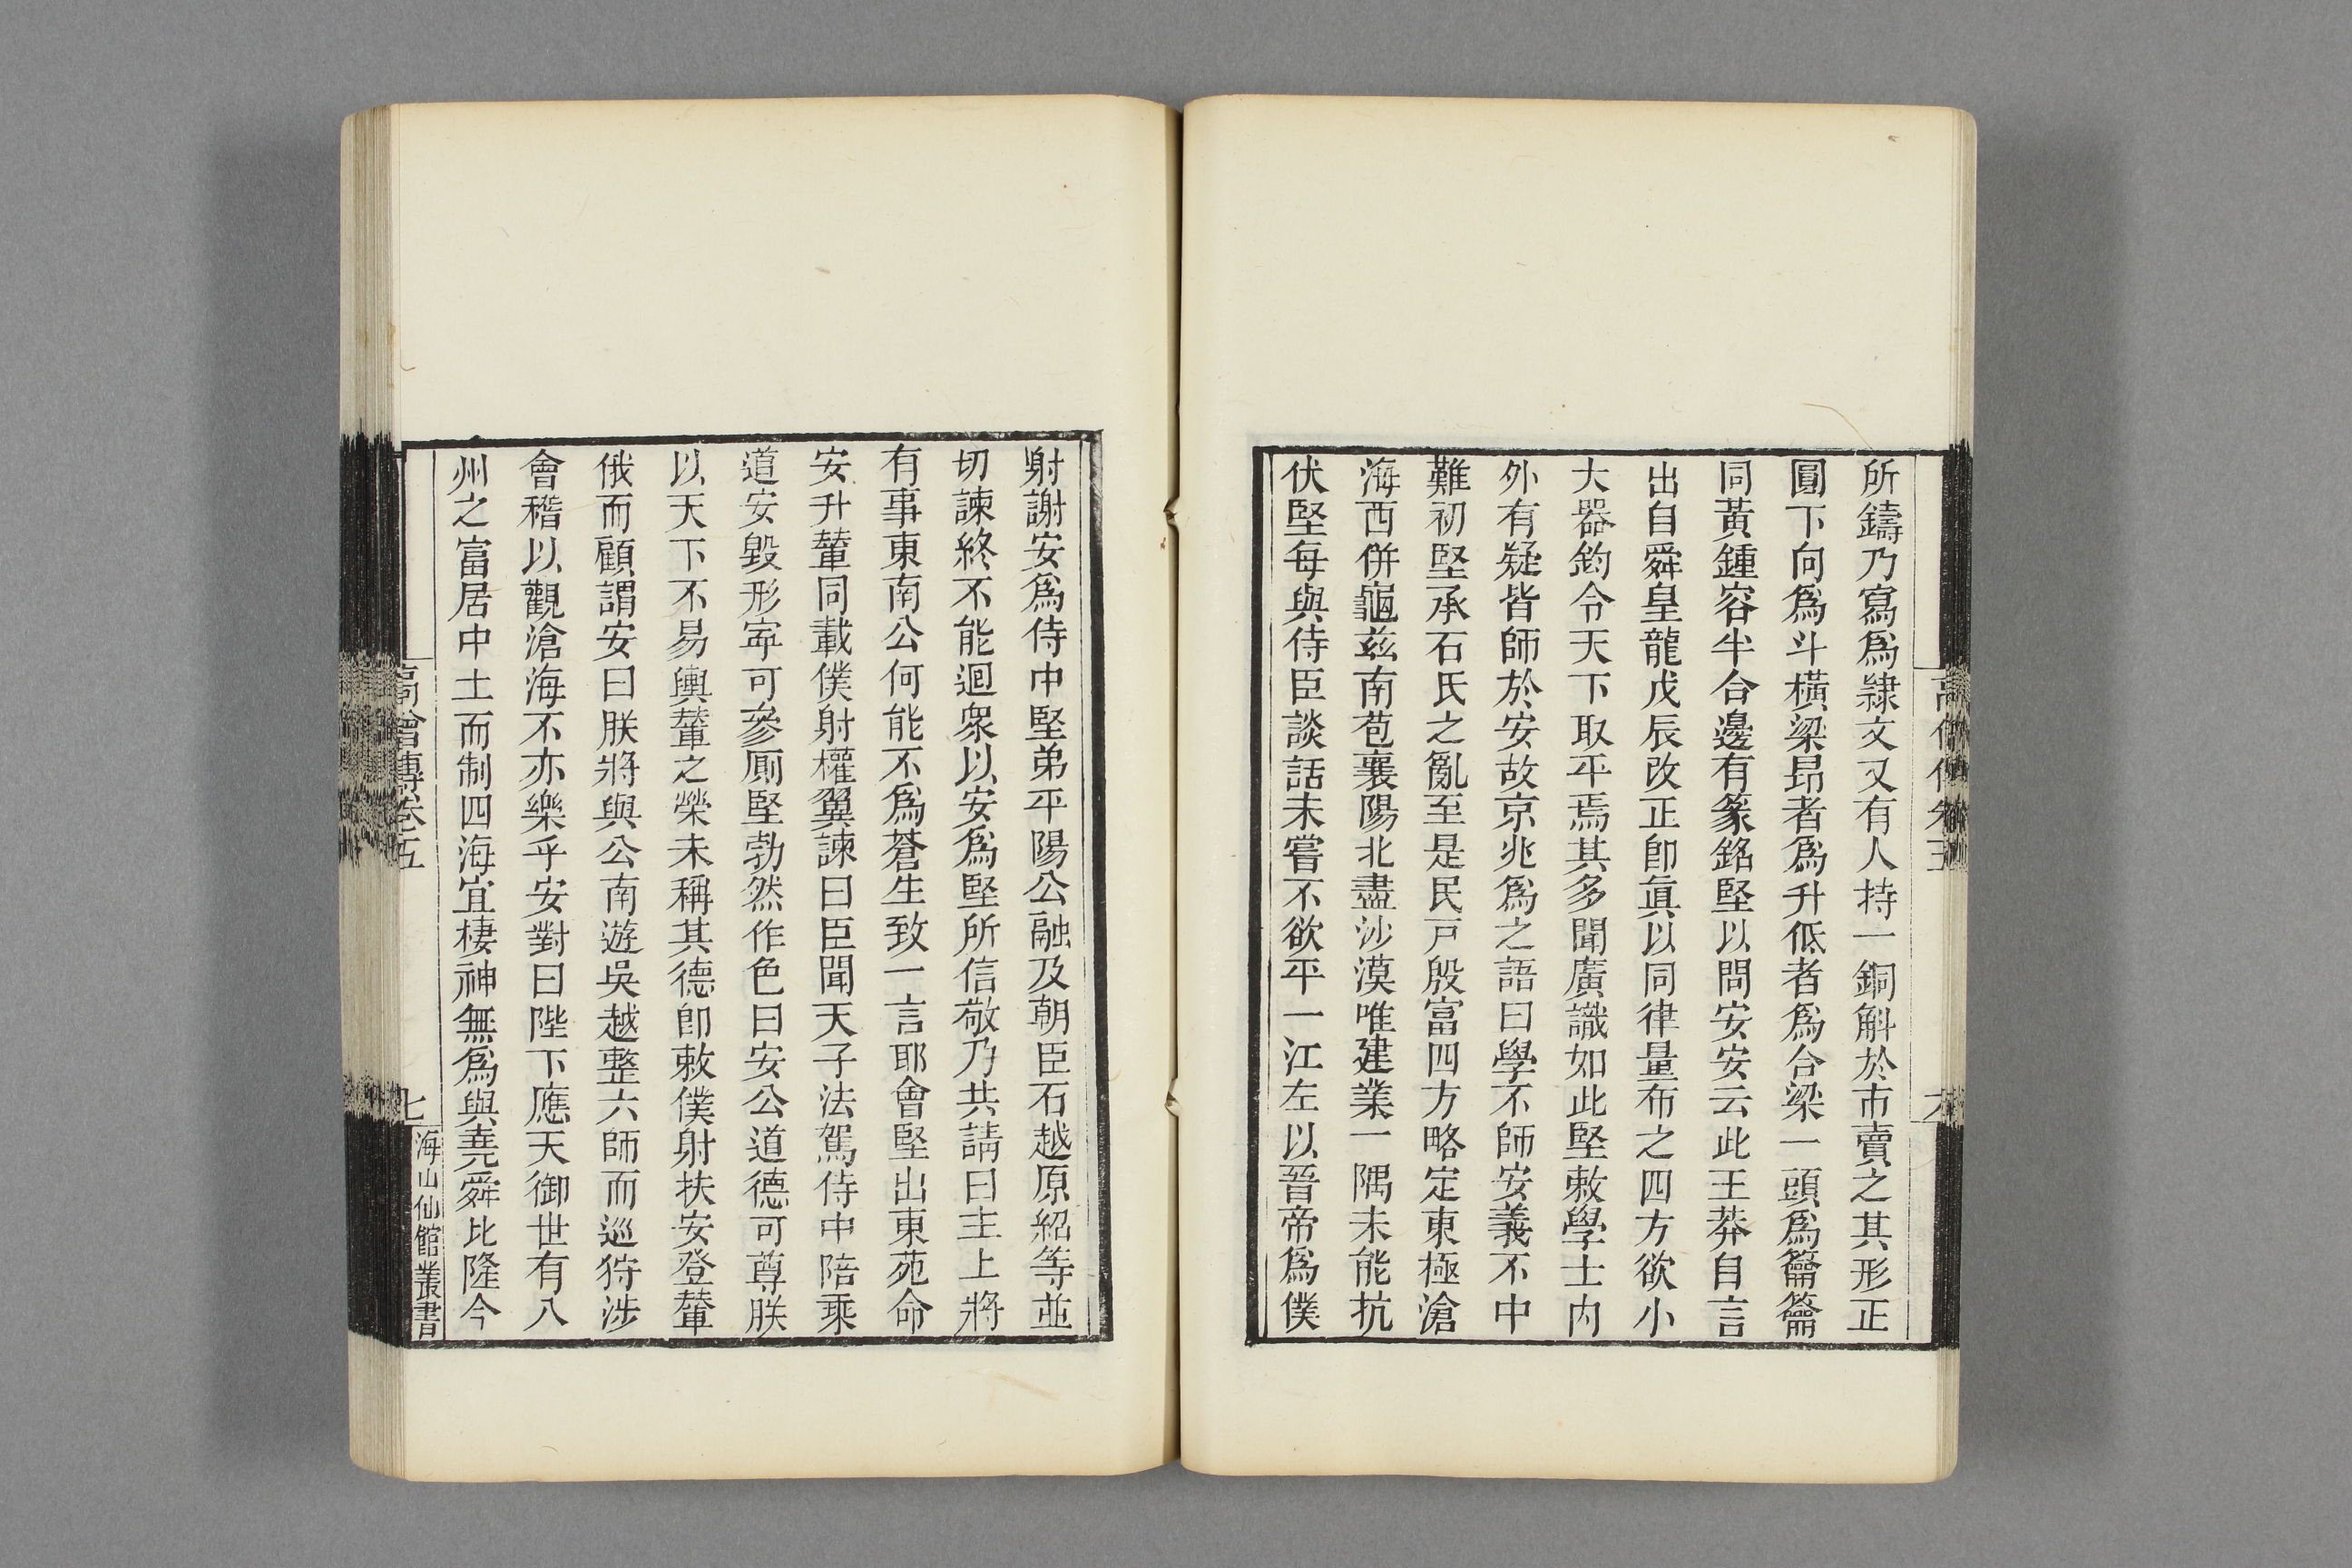 所鑄乃寫爲隷文又有人持一銅斛於市賣之其形正
圓下向爲斗橫梁昻者爲升低者爲合梁一頭爲籥籥
同黃鍾容半合邊有篆銘堅以問安安云此王莽自言
出自舜皇龍戊辰改正卽眞以同律量布之四方欲小
大器鈞令天下取平焉其多聞廣識如此堅敕學士內
外有疑皆師於安故京兆爲之語曰學不師安義不中
難初堅承石氏之亂至是民戸殷富四方略定東極滄
海西併龜兹南苞襄陽北盡沙漠唯建業一隅未能抗
伏堅每與侍臣談話未嘗不欲平一江左以晉帝爲僕
射謝安爲侍中堅弟平陽公融及朝臣石越原紹等並
切諫終不能迴衆以安爲堅所信敬乃共請曰主上將
有事東南公何能不爲蒼生致一言耶會堅出東苑命
安升輦同載僕射權翼諫曰臣聞天子法駕侍中陪乘
道安毀形寧可參厠堅勃然作色曰安公道德可尊朕
以天下不易輿輦之榮未稱其德卽敕僕射扶安登輦
俄而顧謂安曰朕將與公南遊吳越整六師而巡狩涉
會稽以觀滄海不亦樂乎安對曰陛下應天御世有八
州之富居中土而制四海宜棲神無爲與堯舜比隆今
高僧傳卷五
七
海山仙館叢書